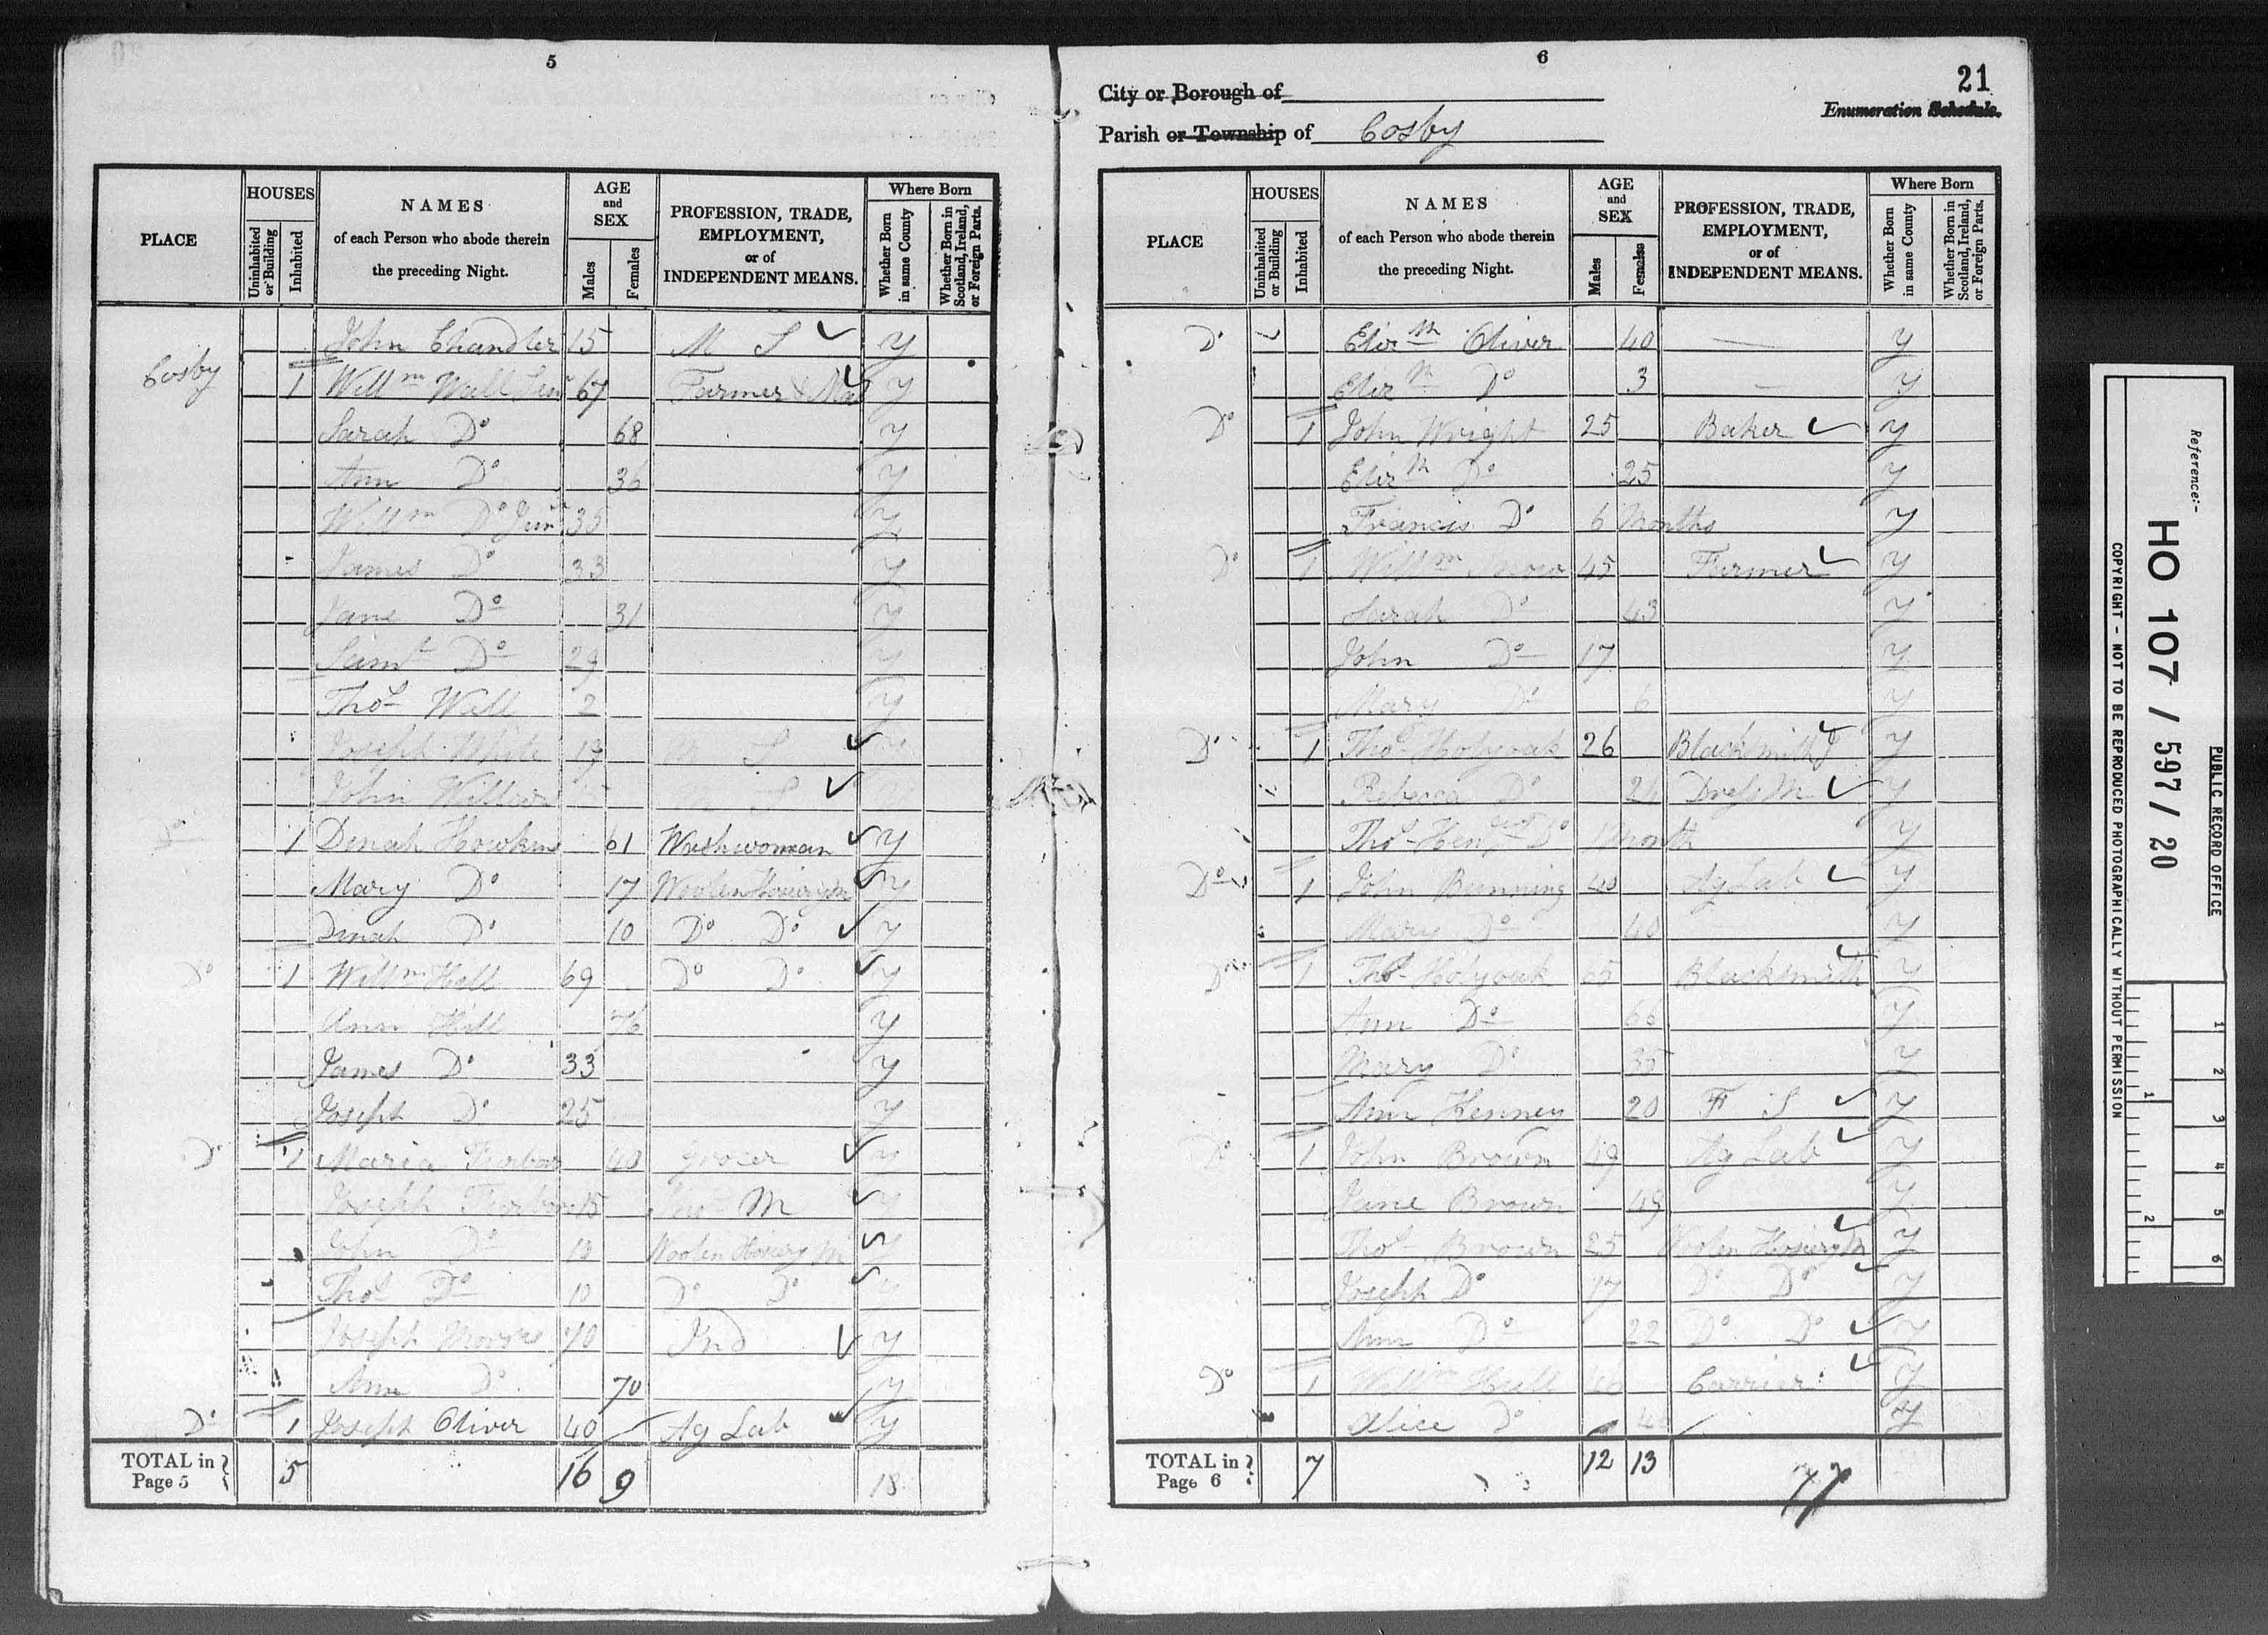 5
PLACE
HOUSES
Uninhabited or Building
Inhabited
NAMES
of each Person who abode therein
the preceding Night.
AGE
and
SEX
Males
Females
PROFESSION, TRADE,
EMPLOYMENT,
or of
INDEPENDENT MEANS.
Where Born
Whether Born in same County
Whether Born in Scotland, Ireland, or Foreign Parts.
John Chandler 15 M S Y
Cosby 1 Willm Wall Senr 67 Farmer & Y
Sarah Do 68 Y
Ann Do 36 Y
Willm Do Junr 35 Y
James Do 33 Y
Jane Do 31 Y
Saml Do 29 Y
Thos Wall 2 Y
Joseph White 19 M S Y
John M S Y
Do 1 Dinah Howkins 61 Washwoman Y
Mary Do 17 Woolen Hosiery M Y
Dinah Do 10 Do Do Y
Do 1 Willm Hill 69 Do Do Y
Ann Hill 76 Y
James Do 33 Y
Joseph Do 25 Y
Do 1 Maria 40 Grocer Y
Joseph 15 M Y
John Do Woolen Hosiery M Y
Thos Do 10 Do Do Y
Joseph 70 Ind Y
Ann Do 70 Y
Do 1 Joseph Oliver 40 Ag Lab Y
TOTAL in Page 5 5 16 9 18
6
21
City or Borough of
Enumeration Schedule.
Parish or Township of Cosby
PLACE
HOUSES
Uninhabited or Building
Inhabited
NAMES
of each Person who abode therein
the preceding Night.
AGE
and
SEX
Males
Females
PROFESSION, TRADE,
EMPLOYMENT,
or of
INDEPENDENT MEANS.
Where Born
Whether Born in same County
Whether Born in Scotland, Ireland, or Foreign Parts.
Do Elizth Oliver 40 — Y
Elizth Do 3 — Y
Do 1 John Wright 25 Baker Y
Elizth Do 25 Y
Francis Do 6 Months Y
Do 1 Willm 45 Farmer Y
Sarah Do 43 Y
John Do 17 Y
Mary Do 6 Y
Do 1 Thos Holyoak 26 Blacksmith J Y
Rebecca Do Dress M Y
Thos Do Month Y
Do 1 John Bunning 40 Ag Lab Y
Mary Do 40 Y
Do 1 Thos Holyoak 65 Blacksmith Y
Ann Do 66 Y
Mary Do 35 Y
Ann Kenney 20 F S Y
Do 1 John Brown 49 Ag Lab Y
Jane Brown 49 Y
Thos Brown 25 Woolen Hosiery M Y
Joseph Do 17 Do Do Y
Ann Do 22 Do Do Y
Do 1 Willm Hull 40 Carrier Y
Alice Do Y
TOTAL in Page 6 7 12 13
77
Reference:-
HO 107 / 597 / 20
PUBLIC RECORD OFFICE
COPYRIGHT - NOT TO BE REPRODUCED PHOTOGRAPHICALLY WITHOUT PERMISSION
1 2 3 4 5 6
1 2